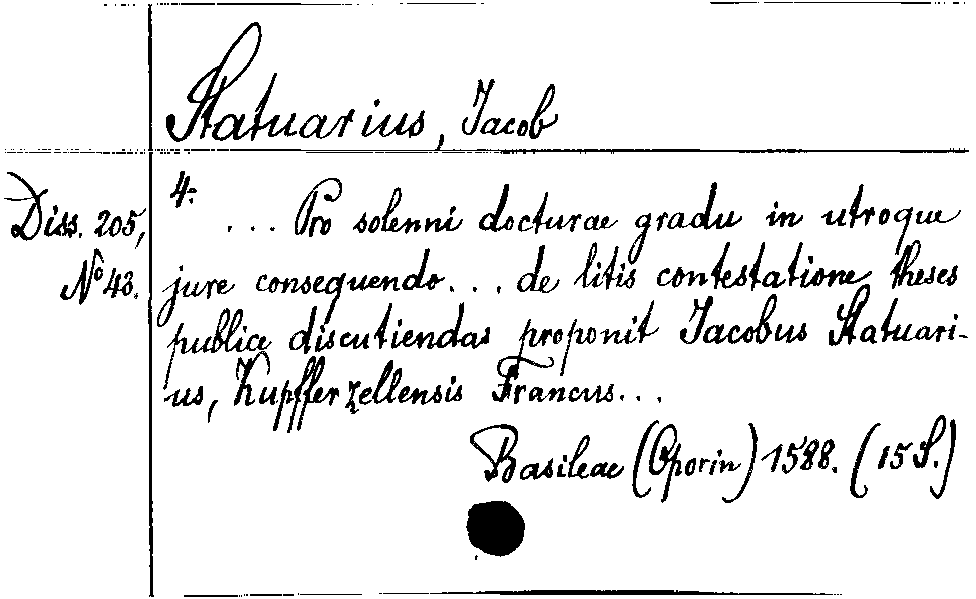 Statuarius, Jacob
Diss. 205,
No 43.
4:
... Pro solenni docturae gradu in utroque
jure consequendo... de litis contestatione theses
publice discutiendas proponit Jacobus Statuari-
us, Kupfferzellensis Francus...
Basileae (Oporin) 1588. (15 S.)